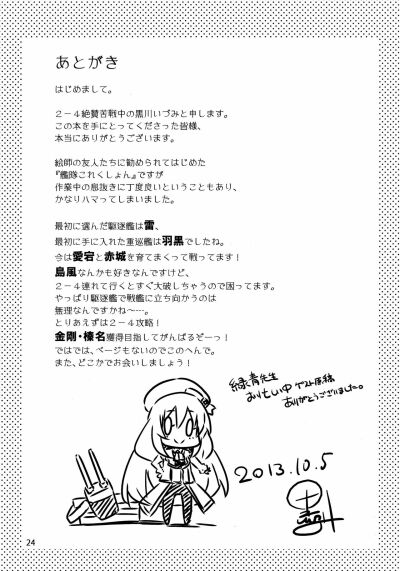 あとがき
はじめまして。
２－４絶賛苦戦中の黒川いづみと申します。
この本を手にとってくださった皆様、
本当にありがとうございます。
絵師の友人たちに勧められてはじめた
『艦隊これくしょん』ですが
作業中の息抜きに丁度良いということもあり、
かなりハマってしまいました。
最初に選んだ駆逐艦は雷、
最初に手に入れた重巡艦は羽黒でしたね。
今は愛宕と赤城を育てまくって戦ってます！
島風なんかも好きなんですけど、
２－４連れて行くとすぐ大破しちゃうので困ってます。
やっぱり駆逐艦で戦艦に立ち向かうのは
無理なんですかね〜…。
とりあえずは２－４攻略！
金剛・榛名獲得目指してがんばるぞーっ！
ではでは、ページもないのでこのへんで。
また、どこかでお会いしましょう！
緑青先生
お忙しい中ゲスト原稿
ありがとうございました。
2013.10.5
24